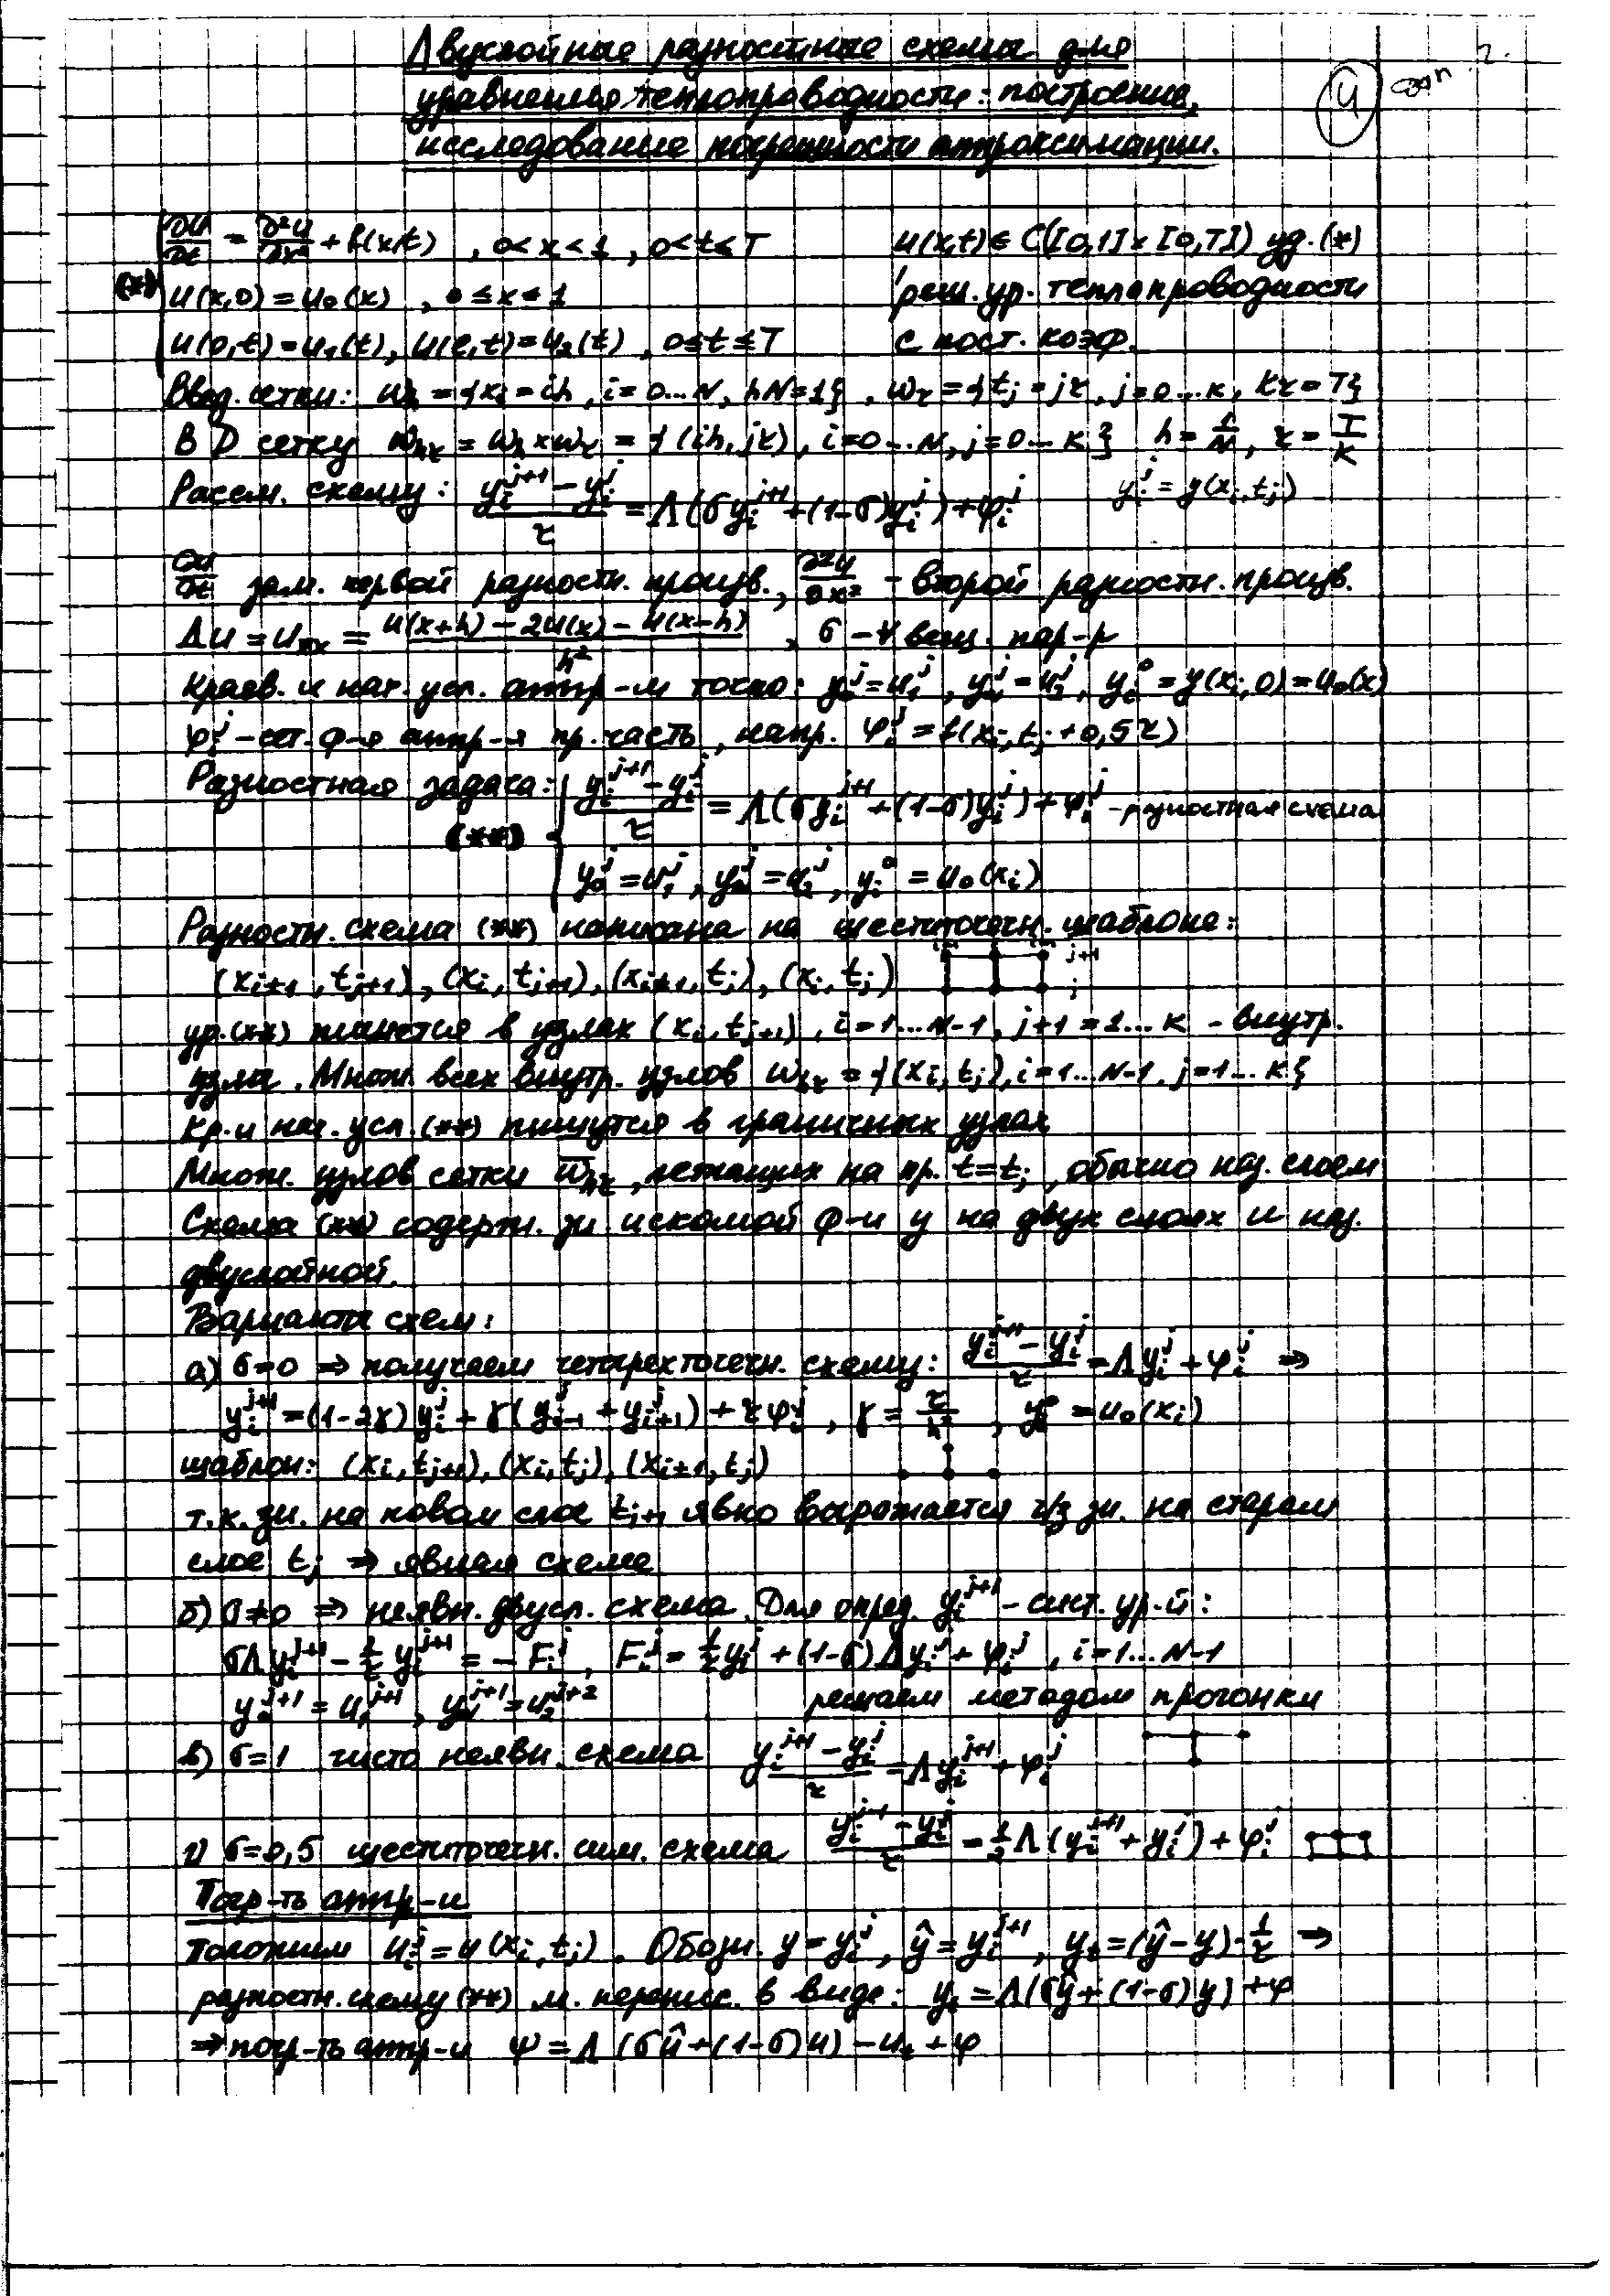 Двуслойные разностные схемы для
уравнения теплопроводности: построение,
исследование погрешности аппроксимации.
4 стр. 2.
∂u/∂t = ∂²u/∂x² + f(x,t) , 0<x<1 , 0<t≤T u(x,t) ∈ C([0,1]×[0,T]) уд. (*)
(*) u(x,0) = u₀(x) , 0≤x≤1 реш. ур. теплопроводности
u(0,t) = u₁(t), u(l,t) = u₂(t) , 0≤t≤T с пост. коэф.
Введ. сетки: ω_h = {x_i = ih, i=0...N, hN=1} , ω_τ = {t_j = jτ, j=0...K, Kτ=T}
В D сетку ω_hτ = ω_h × ω_τ = {(ih, jτ), i=0...N, j=0...K} h = 1/N, τ = T/K
Рассм. схему: (y_i^{j+1} − y_i^j)/τ = Λ(σy_i^{j+1} + (1−σ)y_i^j) + φ_i^j y_i^j = y(x_i, t_j)
∂u/∂t зам. первой разностн. произв., ∂²u/∂x² – второй разностн. произв.
Λu = u_{x̄x} = (u(x+h) − 2u(x) − u(x−h))/h² , σ – ∀ вещ. пар-р
Краев. и нач. усл. аппр-м точно: y_0^j = u_1^j, y_N^j = u_2^j, y_i^0 = y(x_i,0) = u₀(x)
φ_i^j – сет. ф-я аппр-я пр. часть, напр. φ_i^j = f(x_i, t_j + 0,5τ)
Разностная задача: (y_i^{j+1} − y_i^j)/τ = Λ(σy_i^{j+1} + (1−σ)y_i^j) + φ_i^j – разностная схема
(**) y_0^j = u_1^j, y_N^j = u_2^j, y_i^0 = u₀(x_i)
Разностн. схема (**) написана на шеститочечн. шаблоне:
(x_{i±1}, t_{j+1}), (x_i, t_{j+1}), (x_{i±1}, t_j), (x_i, t_j) j+1 j
ур. (**) пишется в узлах (x_i, t_{j+1}), i=1...N−1, j+1=1...K – внутр.
узлы. Множ. всех внутр. узлов ω_hτ = {(x_i, t_j), i=1...N−1, j=1...K}
Кр. и нач. усл. (**) пишутся в граничных узлах
Множ. узлов сетки ω̄_hτ, лежащих на пр. t=t_j, обычно наз. слоем
Схема (**) содерж. зн. искомой ф-и y на двух слоях и наз.
двуслойной.
Варианты схем:
а) σ=0 ⇒ получаем четырехточечн. схему: (y_i^{j+1} − y_i^j)/τ = Λy_i^j + φ_i^j ⇒
y_i^{j+1} = (1−2γ)y_i^j + γ(y_{i−1}^j + y_{i+1}^j) + τφ_i^j , γ = τ/h² , y_i^0 = u₀(x_i)
шаблон: (x_i, t_{j+1}), (x_i, t_j), (x_{i±1}, t_j)
т.к. зн. на новом слое t_{j+1} явно выражается ч/з зн. на старом
слое t_j ⇒ явная схема
б) σ≠0 ⇒ неявн. двусл. схема. Для опред. y_i^{j+1} – сист. ур-й:
σΛy_i^{j+1} − 1/τ y_i^{j+1} = −F_i^j, F_i^j = 1/τ y_i^j + (1−σ)Λy_i^j + φ_i^j , i=1...N−1
y_0^{j+1} = u_1^{j+1} , y_N^{j+1} = u_2^{j+2} решаем методом прогонки
в) σ=1 чисто неявн. схема (y_i^{j+1} − y_i^j)/τ = Λy_i^{j+1} + φ_i^j
г) σ=0,5 шеститочечн. сим. схема (y_i^{j+1} − y_i^j)/τ = 1/2 Λ(y_i^{j+1} + y_i^j) + φ_i^j
Погр-ть аппр-и
Положим u_i^j = u(x_i, t_j). Обозн. y = y_i^j, ŷ = y_i^{j+1}, y_t = (ŷ−y)·1/τ ⇒
разностн. схему (**) м. перепис. в виде: y_t = Λ(σŷ + (1−σ)y) + φ
⇒ погр-ть аппр-и ψ = Λ(σû + (1−σ)u) − u_t + φ